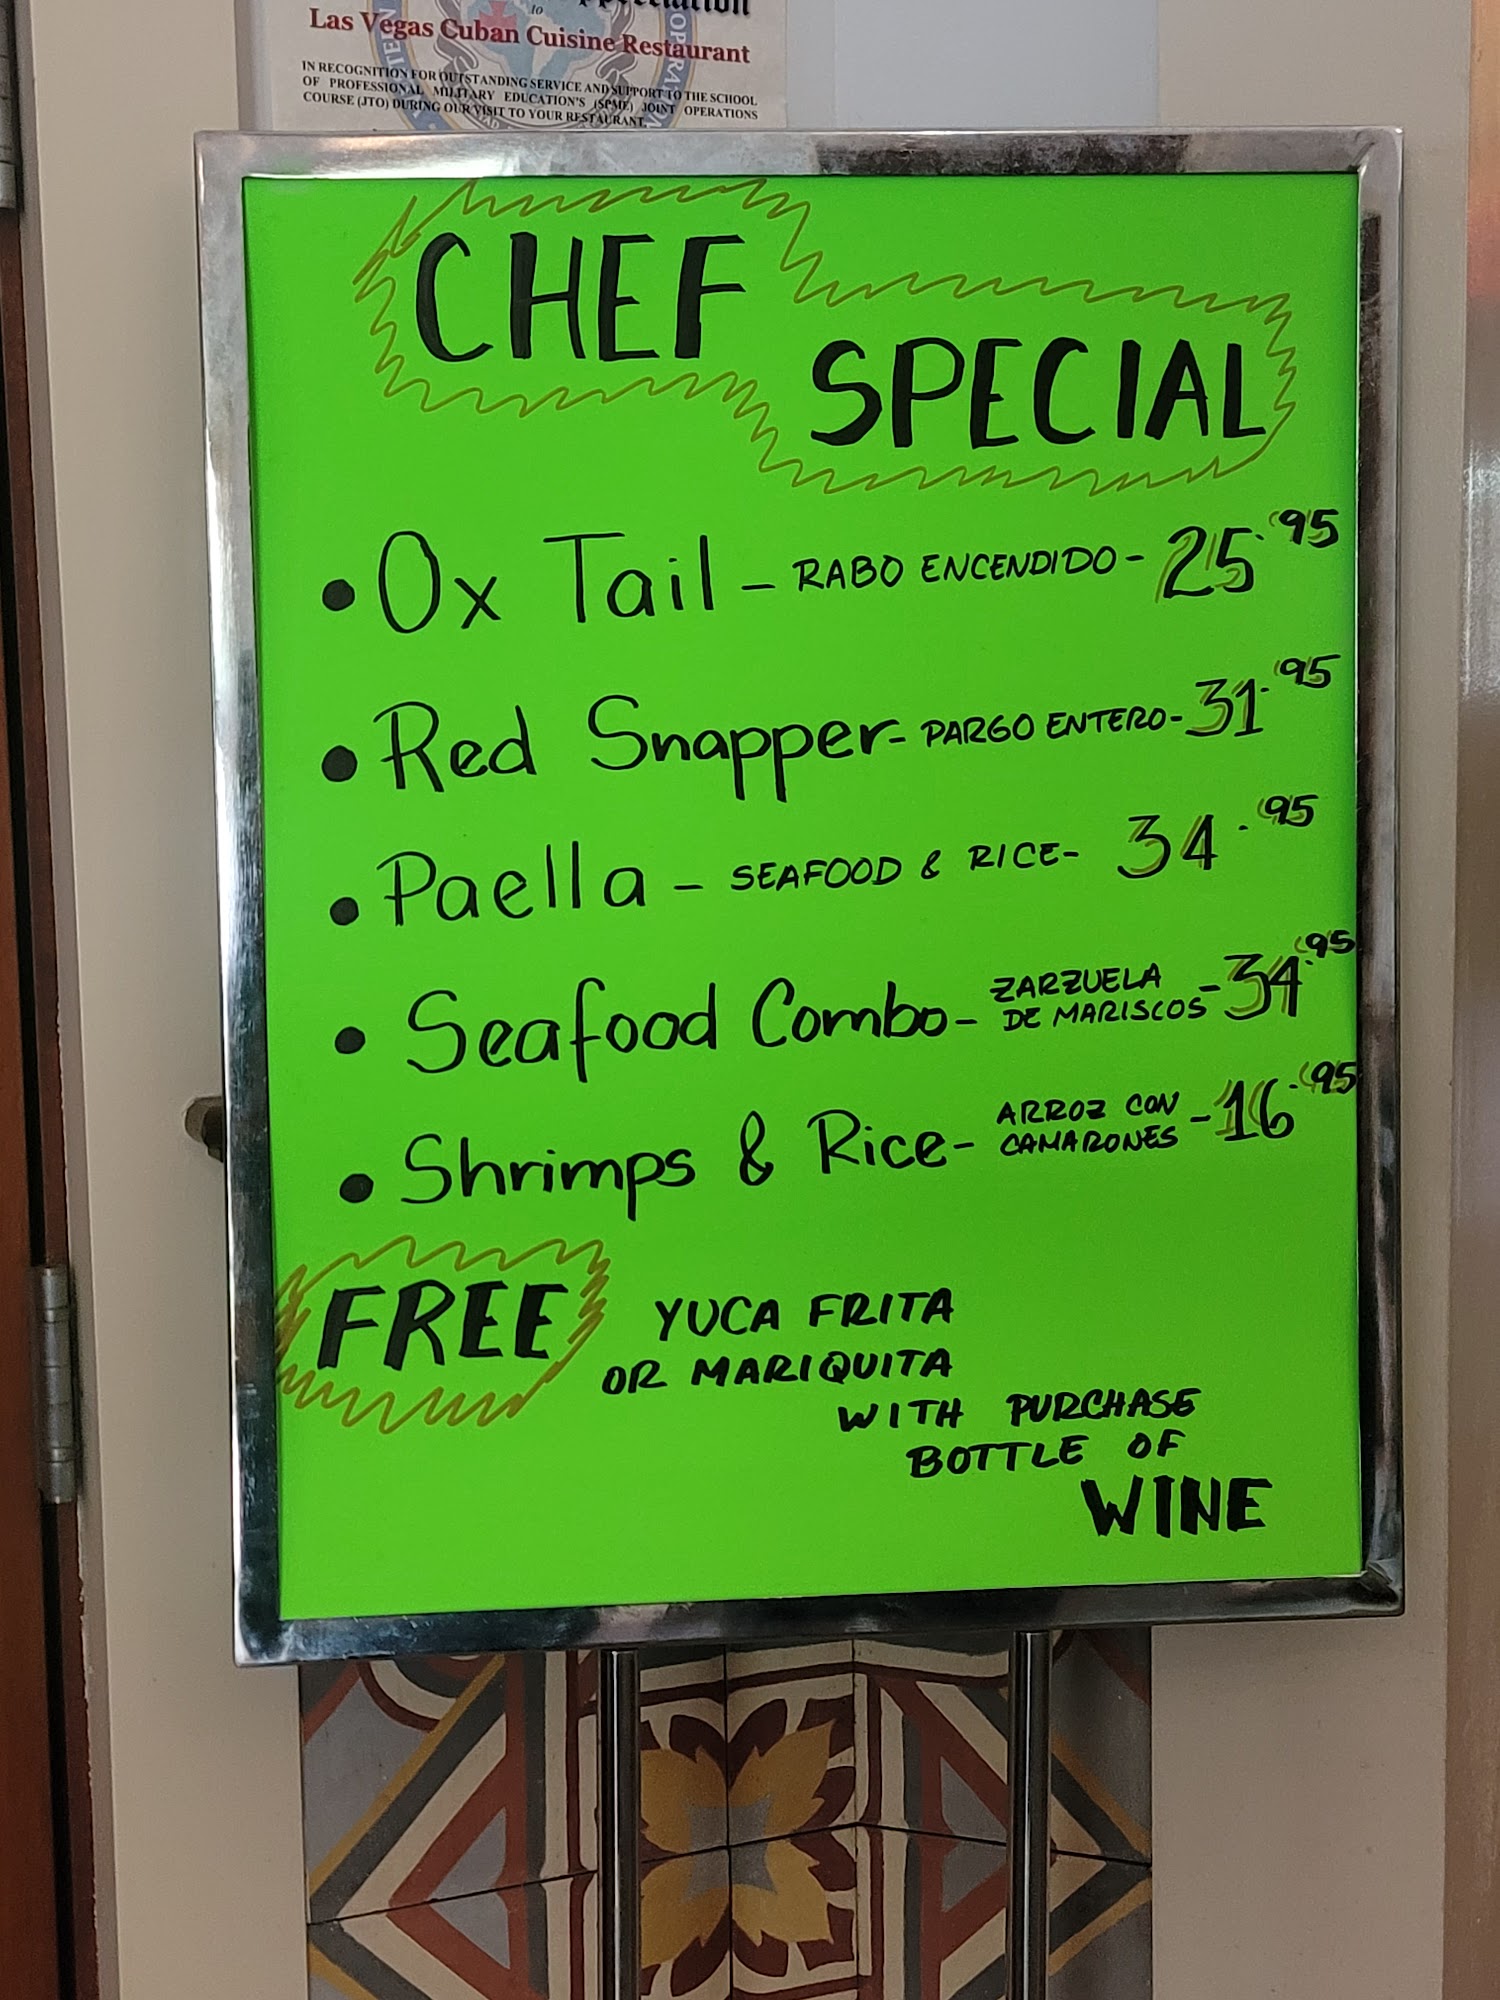 to
Las Vegas Cuban Cuisine Restaurant
IN RECOGNITION FOR OUTSTANDING SERVICE AND SUPPORT TO THE SCHOOL
OF PROFESSIONAL MILITARY EDUCATION'S (SPME) JOINT OPERATIONS
COURSE (JTO) DURING OUR VISIT TO YOUR RESTAURANT.
CHEF
SPECIAL
• Ox Tail - RABO ENCENDIDO - 25.95
• Red Snapper - PARGO ENTERO - 31.95
• Paella - SEAFOOD & RICE - 34.95
• Seafood Combo - ZARZUELA DE MARISCOS - 34.95
• Shrimps & Rice - ARROZ CON CAMARONES - 16.95
FREE YUCA FRITA
OR MARIQUITA
WITH PURCHASE
BOTTLE OF
WINE